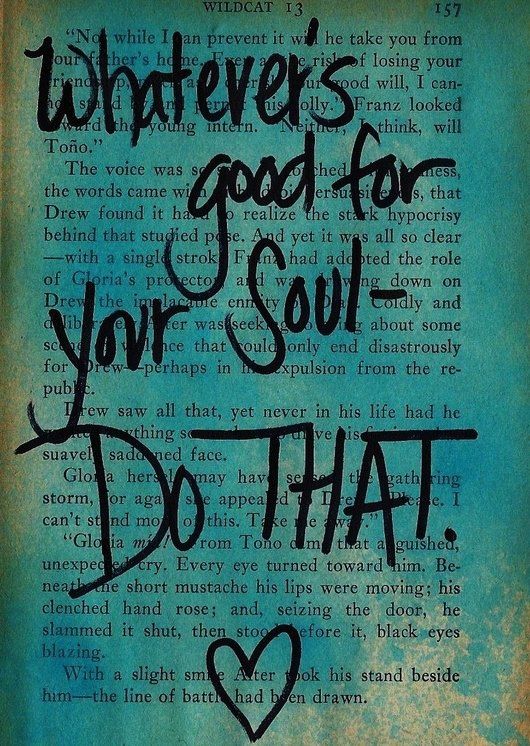 Whatever's
good for
your Soul-
DO THAT.
WILDCAT 13 157
"Not while I can prevent it will he take you from
your father's home. Even at the risk of losing your
good will, I can-
folly." Franz looked
toward the young intern. "Neither, I think, will
Toño."
The voice was so
the words came with persuasiveness, that
Drew found it hard to realize the stark hypocrisy
behind that studied pose. And yet it was all so clear
—with a single stroke Franz had adopted the role
of Gloria's protector and was drawing down on
Drew the implacable enmity of Coldly and
deliberately was seeking to bring about some
scene of violence that could only end disastrously
for Drew—perhaps in his expulsion from the re-
public.
Drew saw all that, yet never in his life had he
anything so
suavely saddened face.
Gloria herself may have sensed the gathering
storm, for again she appealed to Drew. "Please. I
can't stand more of this. Take me away."
"Gloria mía!" From Toño came that anguished,
unexpected cry. Every eye turned toward him. Be-
neath the short mustache his lips were moving; his
clenched hand rose; and, seizing the door, he
slammed it shut, then stood before it, black eyes
blazing.
With a slight smile took his stand beside
him—the line of battle had been drawn.